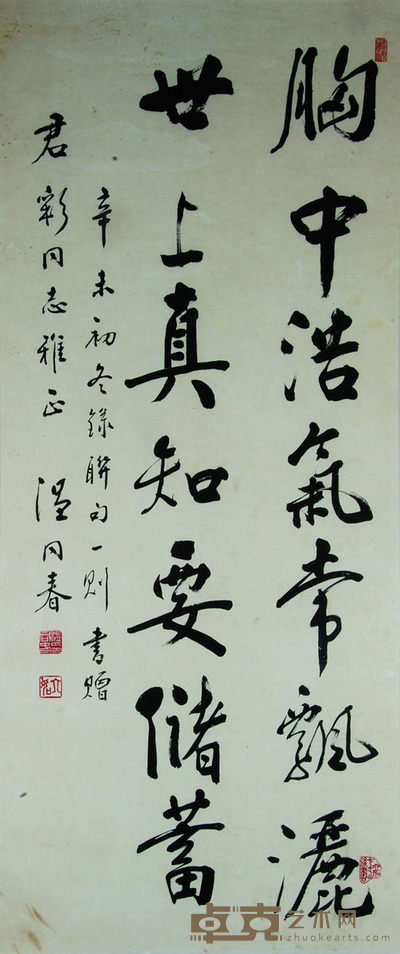 胸中浩氣常飄灑
世上真知要儲蓄
辛未初冬錄聯句一則書贈
君彩同志雅正 溫同春
卓克艺术网
zhuokearts.com